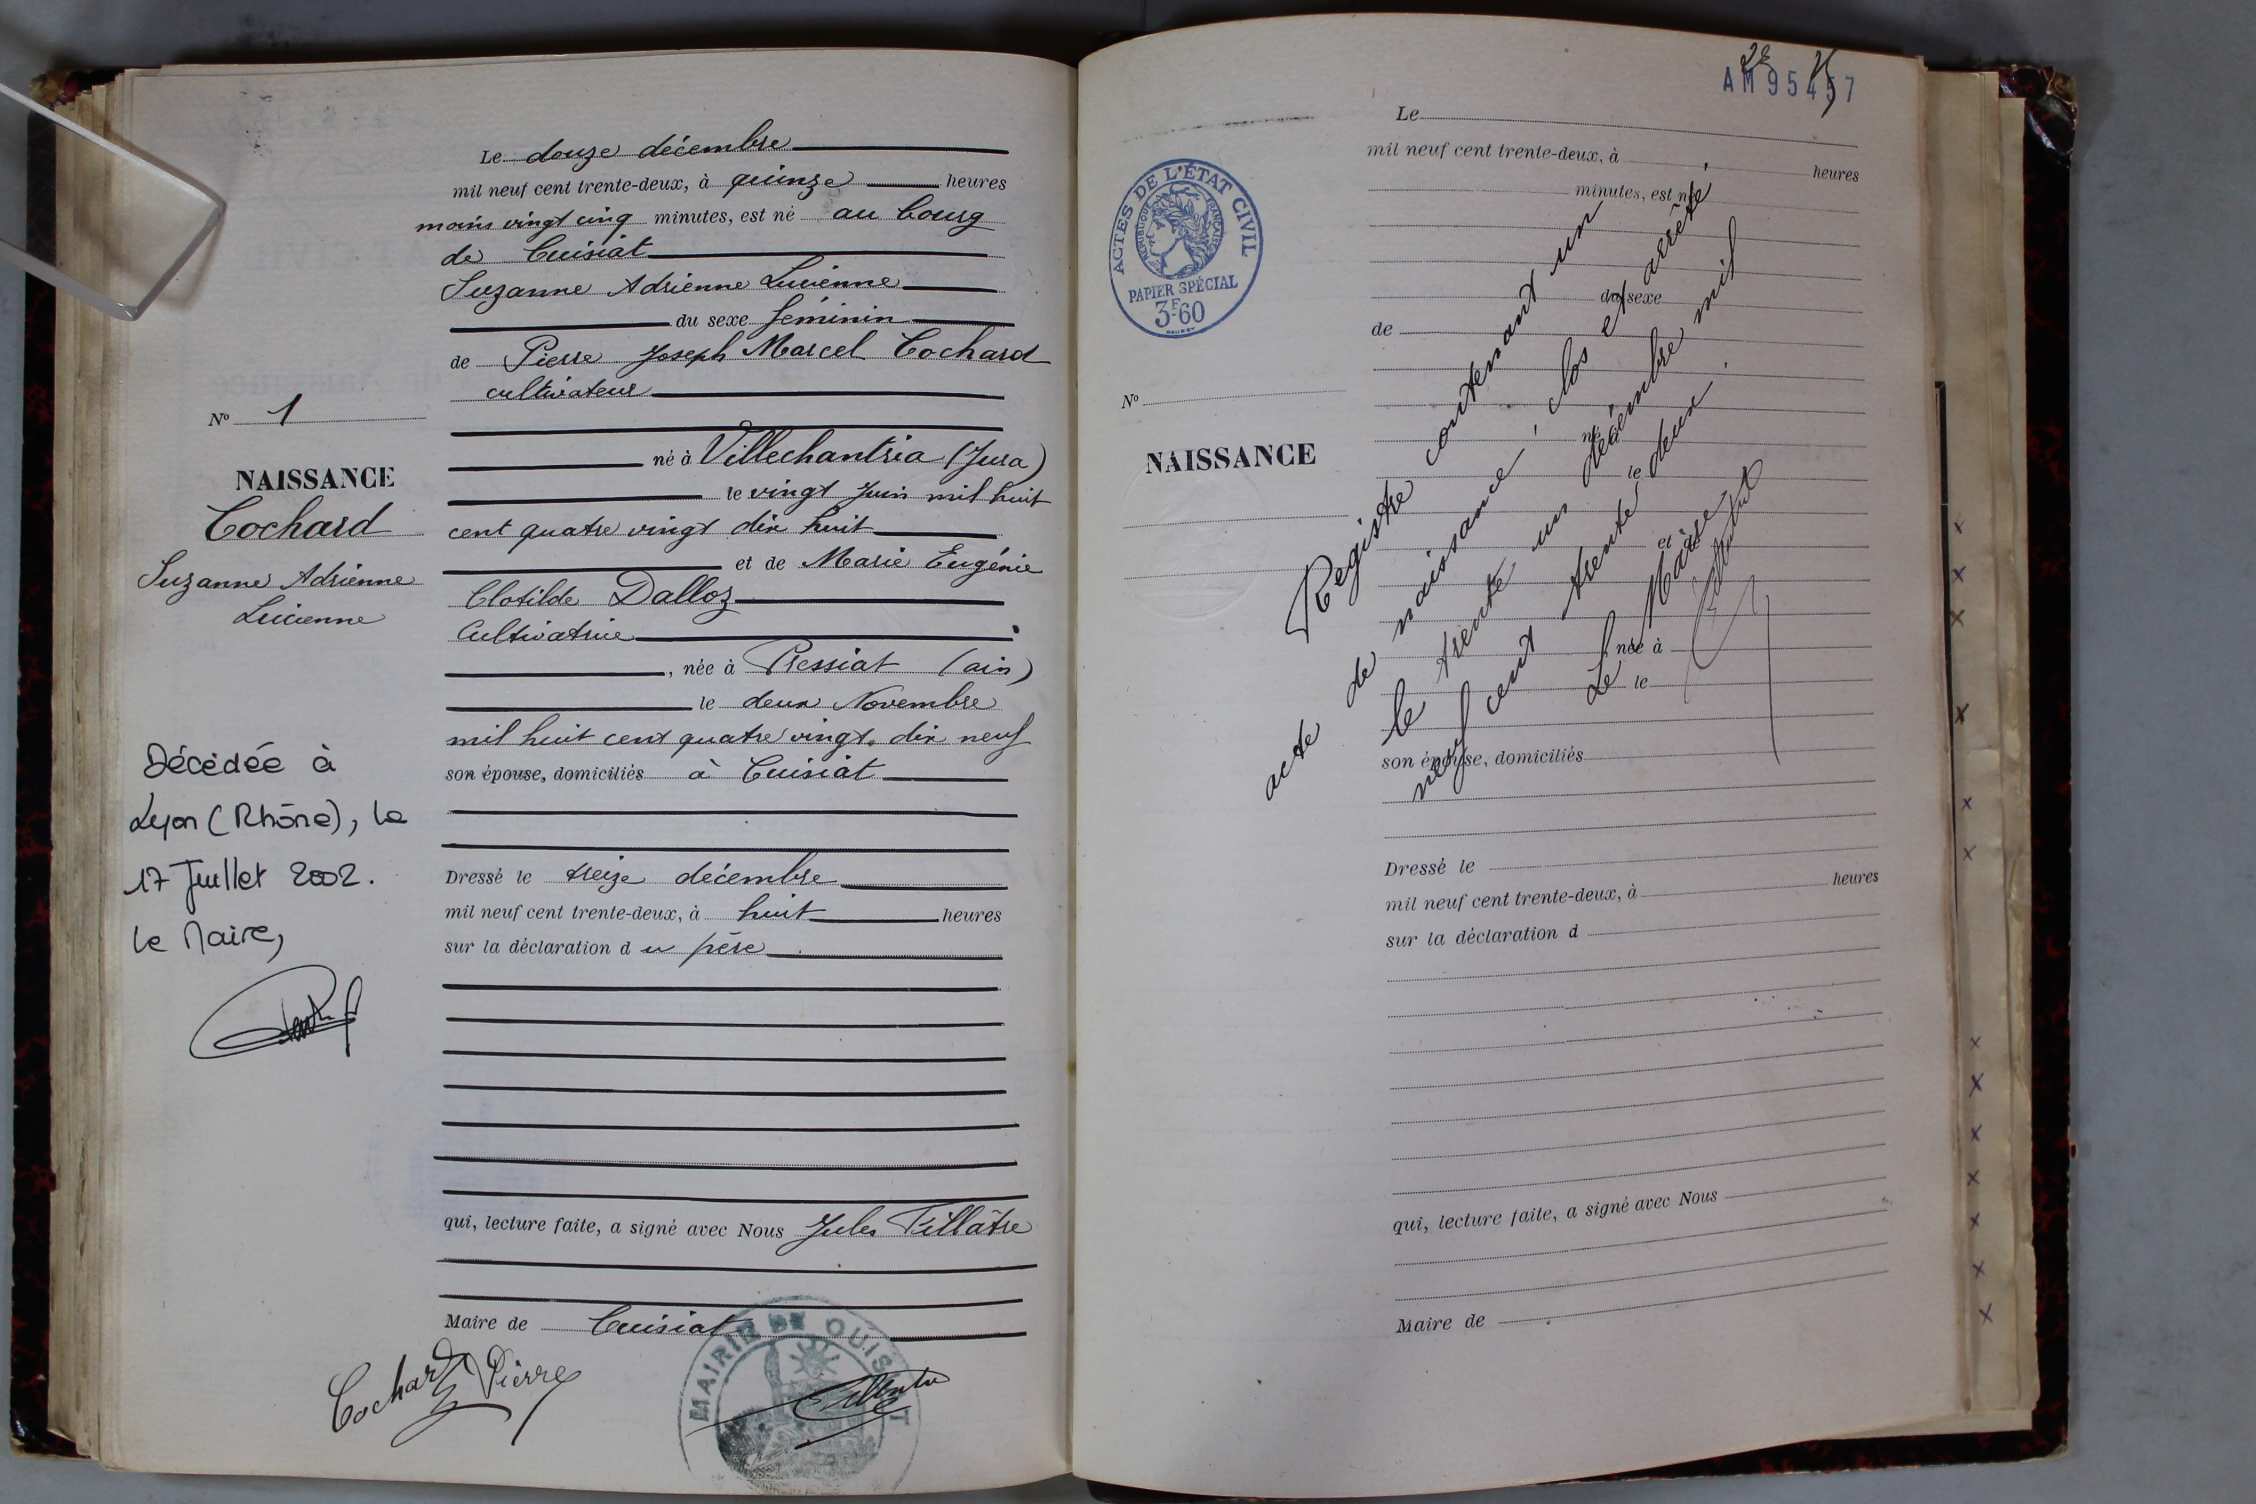 Le douze décembre
mil neuf cent trente-deux, à quinze heures
moins vingt cinq minutes, est né au bourg
de Cuisiat
Suzanne Adrienne Lucienne
du sexe féminin
de Pierre Joseph Marcel Cochard
cultivateur
né à Villechantria (Jura)
le vingt Juin mil huit
cent quatre vingt dix huit
et de Marie Eugénie
Clotilde Dalloz
Cultivatrice
, née à Pressiat (ain)
le deux Novembre
mil huit cent quatre vingt dix neuf
son épouse, domiciliés à Cuisiat
Dressé le treize décembre
mil neuf cent trente-deux, à huit heures
sur la déclaration du père
qui, lecture faite, a signé avec Nous Jules Tillâtre
Maire de Cuisiat
Cochard Pierre
MAIRIE DE CUISIAT
No 1
NAISSANCE
Cochard
Suzanne Adrienne
Lucienne
Décédée à
Lyon (Rhône), le
17 Juillet 2002.
Le Maire,
AM 95457
ACTES DE L'ÉTAT CIVIL
RÉPUBLIQUE FRANÇAISE
PAPIER SPÉCIAL
3F60
No
NAISSANCE
Le
mil neuf cent trente-deux, à heures
minutes, est né
du sexe
de
né à
le
et de
née à
le
son épouse, domiciliés
Dressé le
mil neuf cent trente-deux, à heures
sur la déclaration d
qui, lecture faite, a signé avec Nous
Maire de
Registre contenant un
acte de naissance, clos et arrêté
le trente un décembre mil
neuf cent trente deux.
Le Maire